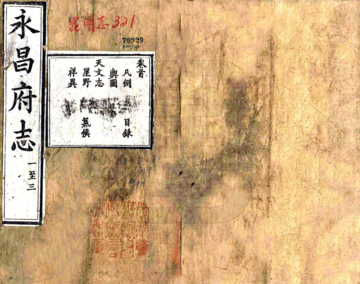 永昌府志
一至三
卷首
凡例
目錄
輿圖
天文志
星野
氣候
祥異
70929